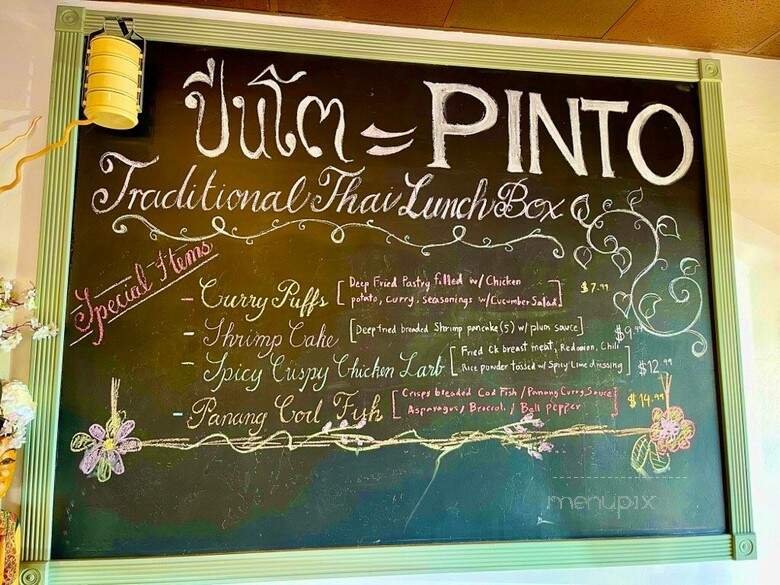 ปิ่นโต = PINTO
Traditional Thai Lunch Box
Special Items
- Curry Puffs [Deep Fried Pastry filled w/ Chicken $7.99
potato, curry, seasonings w/Cucumber Salad]
- Shrimp Cake [Deep fried breaded Shrimp pancake(s) w/ plum sauce] $9.99
- Spicy Crispy Chicken Larb [Fried Ck breast meat, Redonion, Chili $12.99
Rice powder tossed w/ Spicy Lime dressing]
- Panang Cod Fish [Crispy breaded Cod Fish / Panang Curry Sauce $14.99
Asparagus / Broccoli / Bell pepper]
menupix